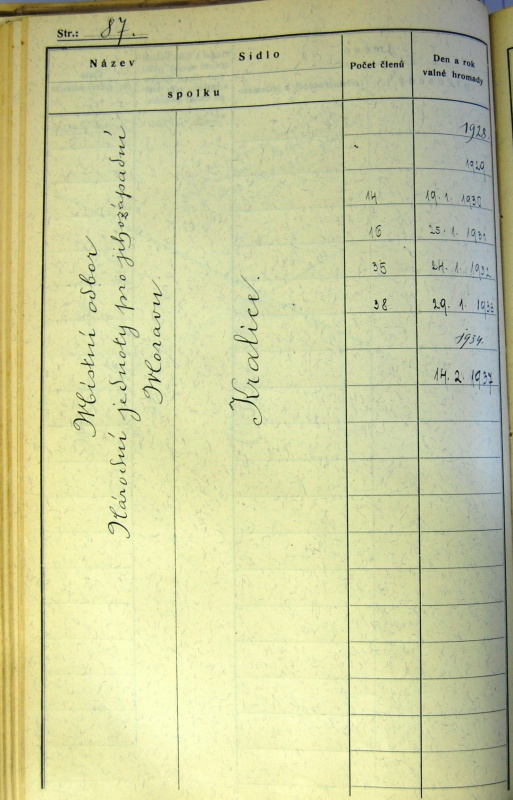 Str.: 87.
Název
Sídlo
spolku
Počet členů
Den a rok
valné hromady
Místní odbor
Národní jednoty pro jihozápadní
Moravu
Kralice.
1928.
1929
14 19. 1. 1930
16 25. 1. 1931
35 24. 1. 1932
38 29. 1. 1933
1934.
14. 2. 1937